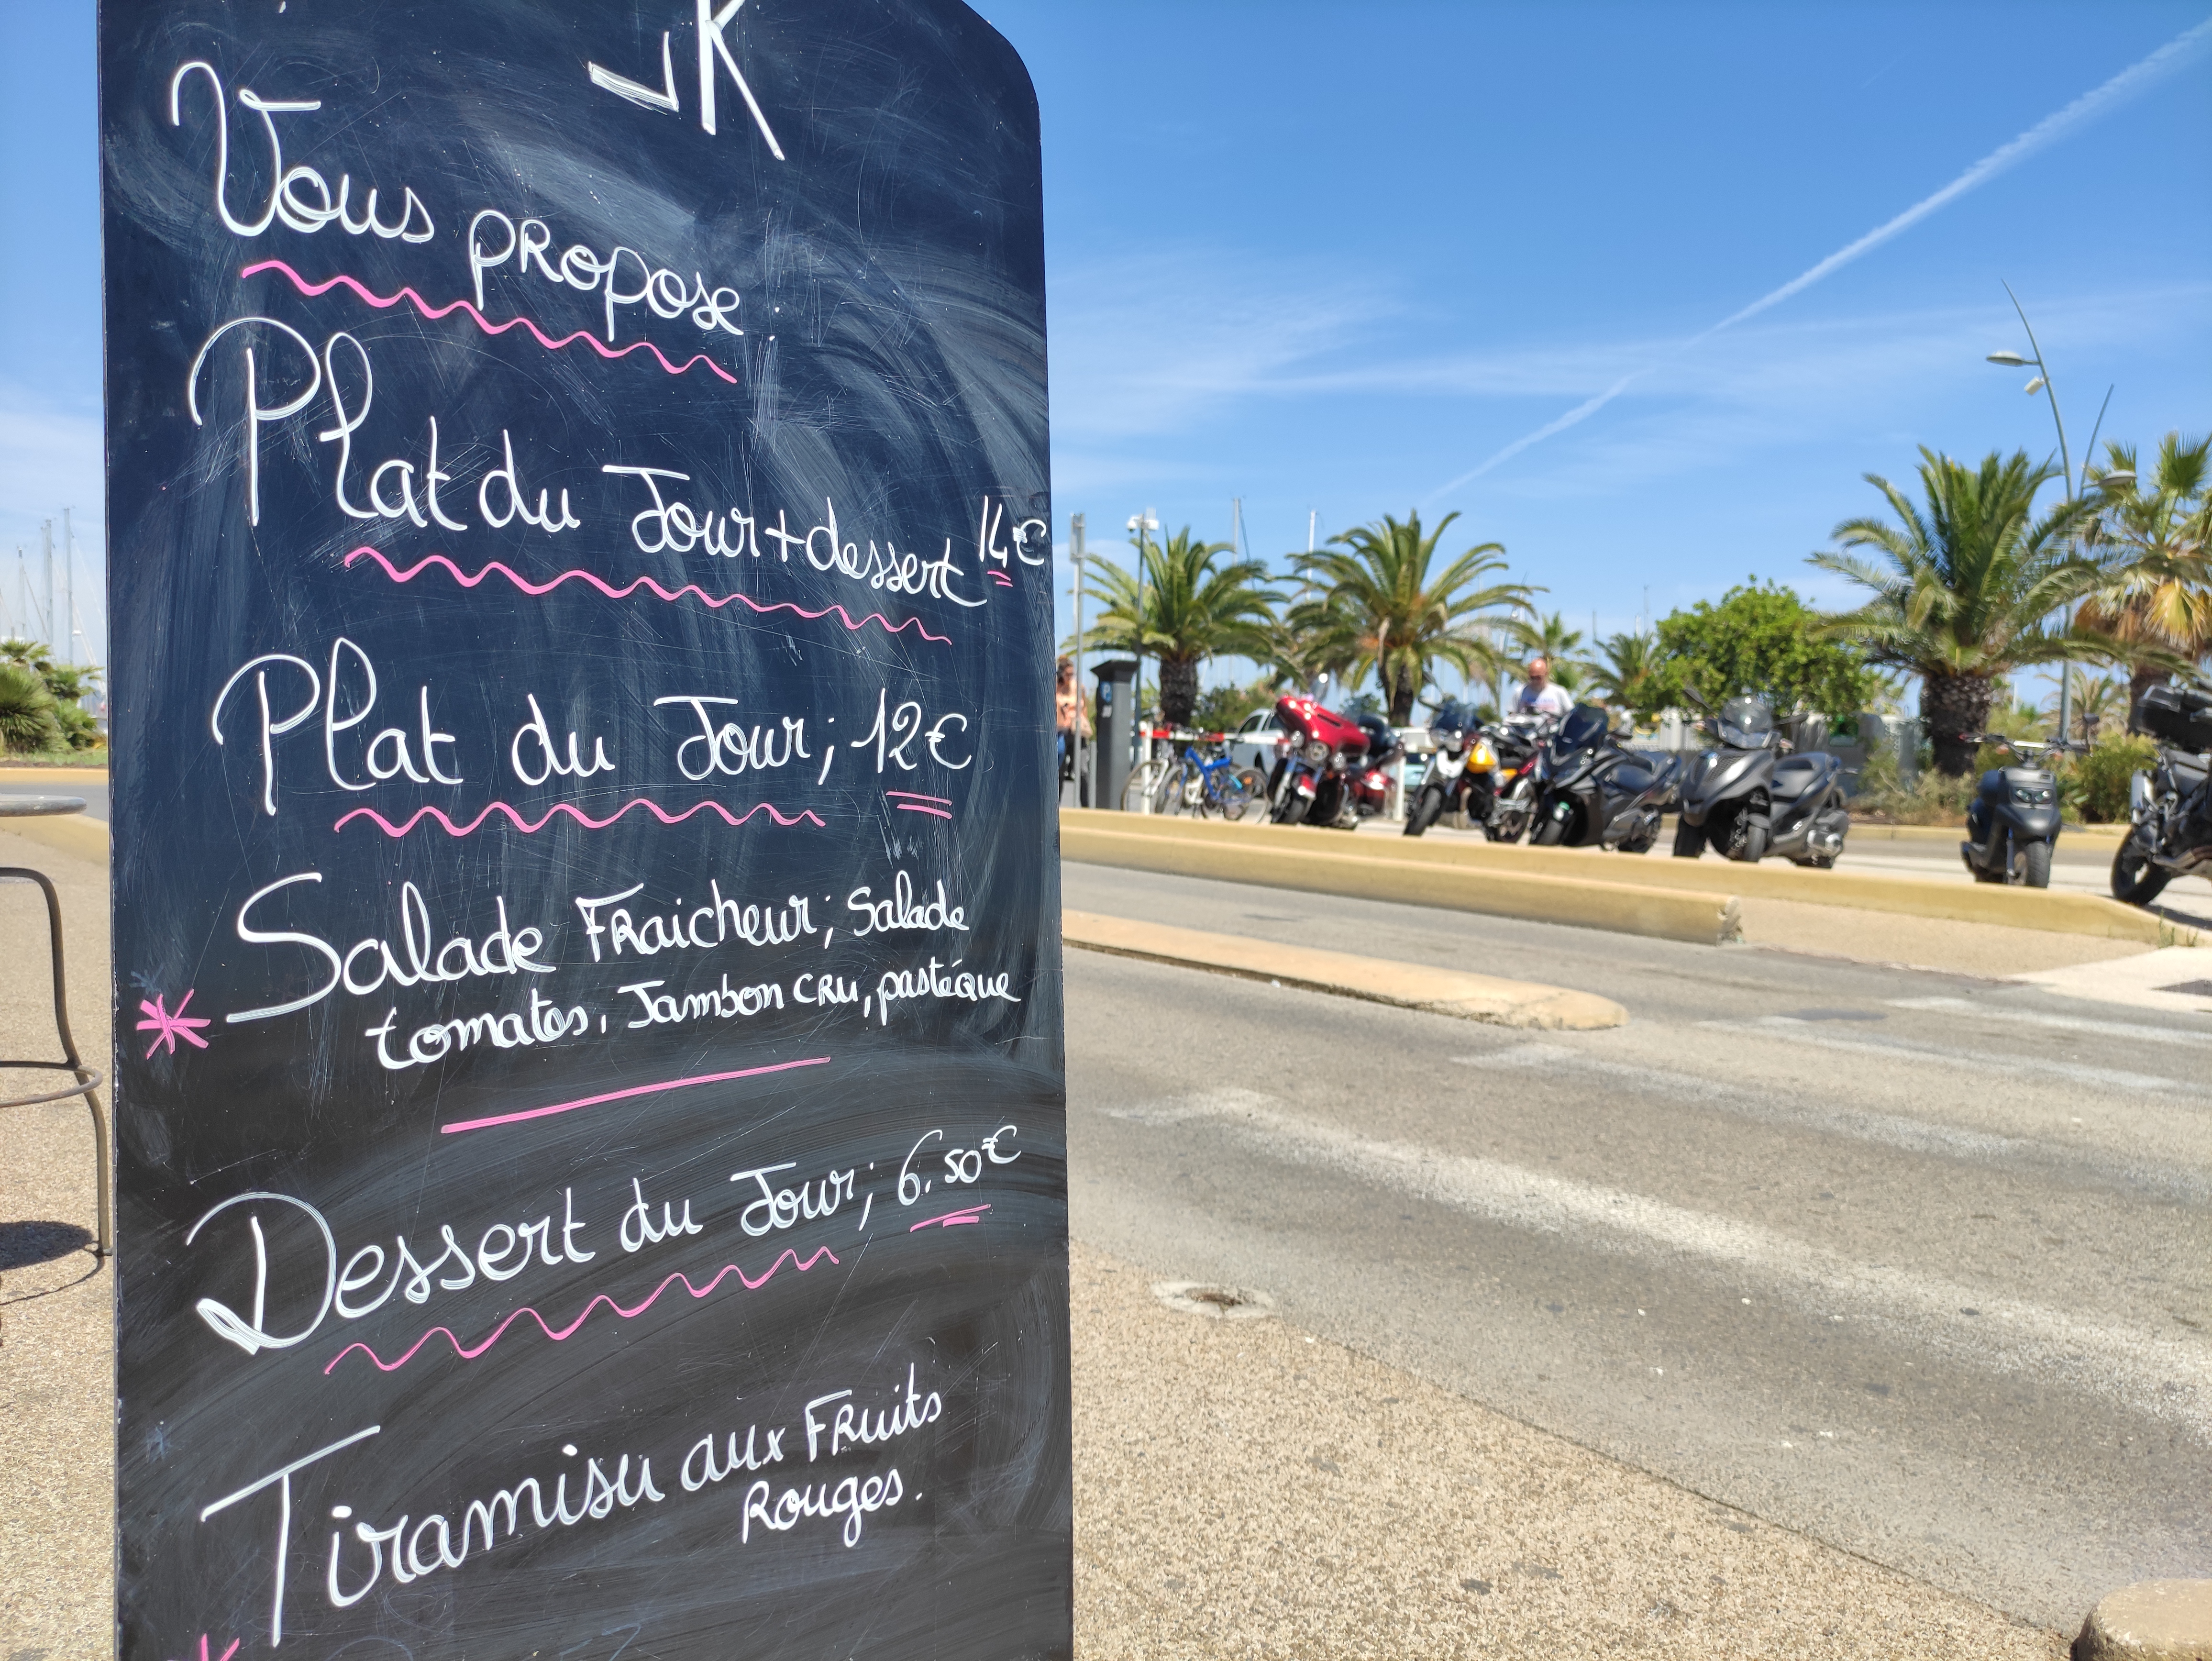 JK
Vous propose :
Plat du Jour + dessert 14€
Plat du Jour ; 12€
Salade Fraicheur ; Salade
tomates, Jambon cru, pastéque
Dessert du Jour ; 6.50€
Tiramisu aux Fruits
Rouges.